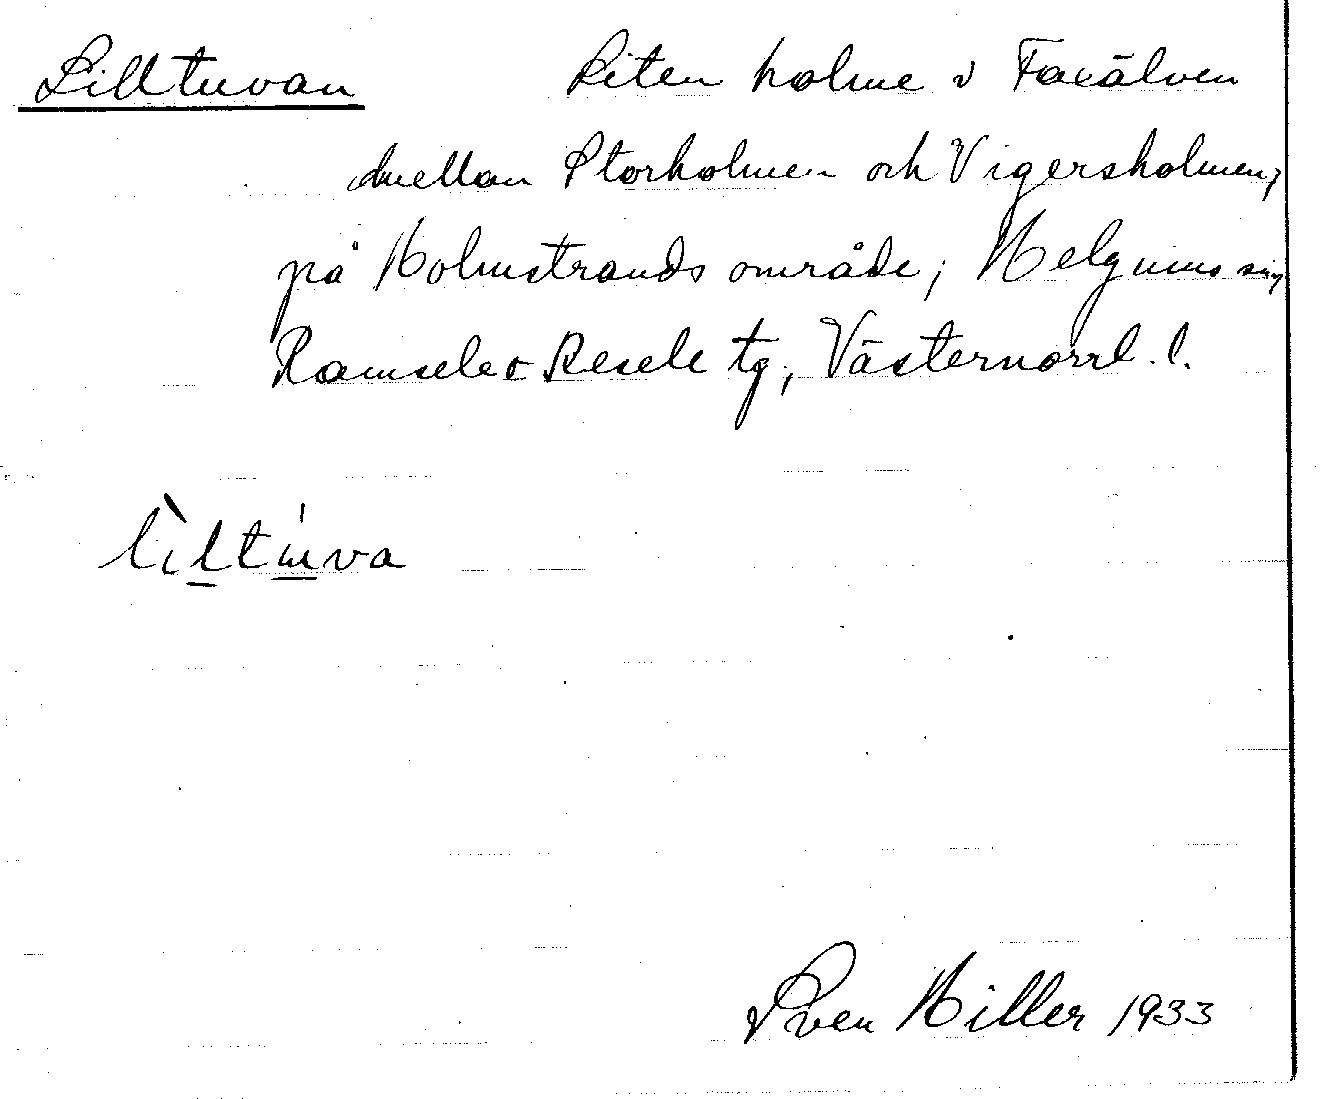 Lilltuvan Liten holme i Faxälven
mellan Storholmen och Vigersholmen,
på Holmstrands område; Helgums sn,
Ramsele o Resele tg, Västernorrl. l.
lìltúva
Sven Hiller 1933